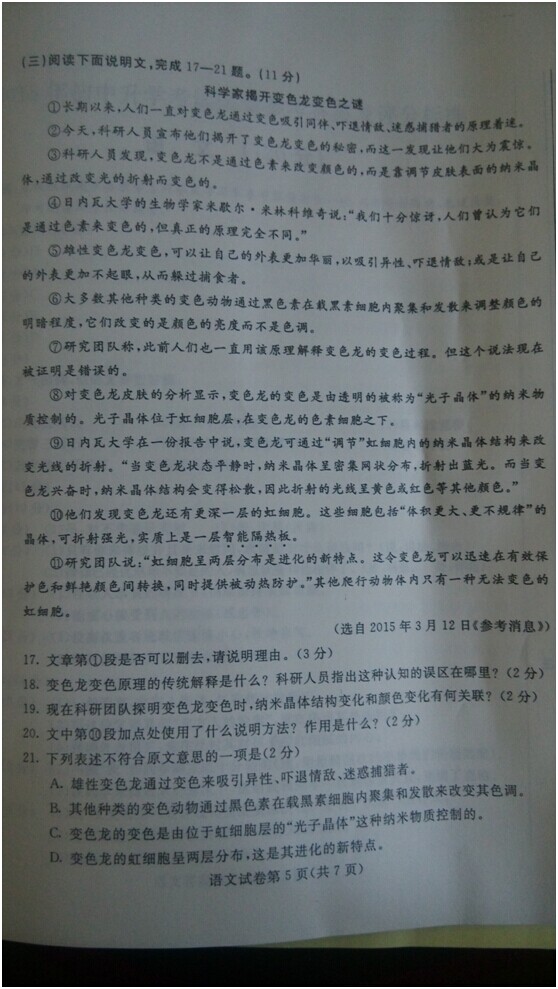 (三)阅读下面说明文,完成17—21题。(11分)
科学家揭开变色龙变色之谜
①长期以来,人们一直对变色龙通过变色吸引同伴、吓退情敌、迷惑捕猎者的原理着迷。
②今天,科研人员宣布他们揭开了变色龙变色的秘密,而这一发现让他们大为震惊。
③科研人员发现,变色龙不是通过色素来改变颜色的,而是靠调节皮肤表面的纳米晶
体,通过改变光的折射而变色的。
④日内瓦大学的生物学家米歇尔·米林科维奇说:“我们十分惊讶,人们曾认为它们
是通过色素来变色的,但真正的原理完全不同。”
⑤雄性变色龙变色,可以让自己的外表更加华丽,以吸引异性、吓退情敌;或是让自己
的外表更加不起眼,从而躲过捕食者。
⑥大多数其他种类的变色动物通过黑色素在载黑素细胞内聚集和发散来调整颜色的
明暗程度,它们改变的是颜色的亮度而不是色调。
⑦研究团队称,此前人们也一直用该原理解释变色龙的变色过程。但这个说法现在
被证明是错误的。
⑧对变色龙皮肤的分析显示,变色龙的变色是由透明的被称为“光子晶体”的纳米物
质控制的。光子晶体位于虹细胞层,在变色龙的色素细胞之下。
⑨日内瓦大学在一份报告中说,变色龙可通过“调节”虹细胞内的纳米晶体结构来改
变光线的折射。“当变色龙状态平静时,纳米晶体呈密集网状分布,折射出蓝光。而当变
色龙兴奋时,纳米晶体结构会变得松散,因此折射的光线呈黄色或红色等其他颜色。”
⑩他们发现变色龙还有更深一层的虹细胞。这些细胞包括“体积更大、更不规律”的
晶体,可折射强光,实质上是一层智能隔热板。
⑪研究团队说:“虹细胞呈两层分布是进化的新特点。这令变色龙可以迅速在有效保
护色和鲜艳颜色间转换,同时提供被动热防护。”其他爬行动物体内只有一种无法变色的
虹细胞。
(选自2015年3月12日《参考消息》)
17. 文章第①段是否可以删去,请说明理由。(3分)
18. 变色龙变色原理的传统解释是什么?科研人员指出这种认知的误区在哪里?(2分)
19. 现在科研团队探明变色龙变色时,纳米晶体结构变化和颜色变化有何关联?(2分)
20. 文中第⑩段加点处使用了什么说明方法?作用是什么?(2分)
21. 下列表述不符合原文意思的一项是(2分)
A. 雄性变色龙通过变色来吸引异性、吓退情敌、迷惑捕猎者。
B. 其他种类的变色动物通过黑色素在载黑素细胞内聚集和发散来改变其色调。
C. 变色龙的变色是由位于虹细胞层的“光子晶体”这种纳米物质控制的。
D. 变色龙的虹细胞呈两层分布,这是其进化的新特点。
语文试卷第5页(共7页)